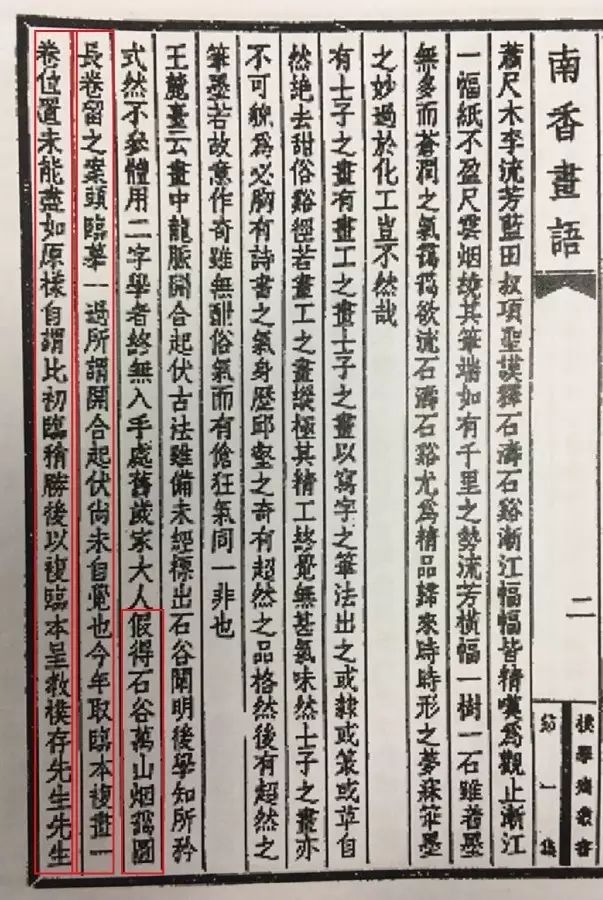 南香畫語
二
樸學齋叢書
第一集
蕭尺木李流芳藍田叔項聖謨釋石濤石谿漸江幅幅皆精嘆爲觀止漸江
一幅紙不盈尺雲烟繞其筆端如有千里之勢流芳橫幅一樹一石雖着墨
無多而蒼潤之氣靄靄欲流石濤石谿尤爲精品歸來時時形之夢寐荘墨
之妙過於化工豈不然哉
有士子之畫有畫工之畫士子之畫以寫字之筆法出之或隸或篆或草自
然絶去甜俗谿徑若畫工之畫縱極其精工終覺無甚氣味然士子之畫亦
不可貌爲必胸有詩書之氣身歷邱壑之奇有超然之品格然後有超然之
筆墨若故意作奇雖無甜俗氣而有傖狂氣同一非也
王麓臺云畫中龍脈開合起伏古法雖備未經標出石谷闡明後學知所矜
式然不參體用二字學者終無入手處舊歲家大人假得石谷萬山烟靄圖
長卷留之案頭臨摹一過所謂開合起伏尚未自覺也今年取臨本複畫一
卷位置未能盡如原樣自謂比初臨稍勝後以複臨本呈教樸存先生先生